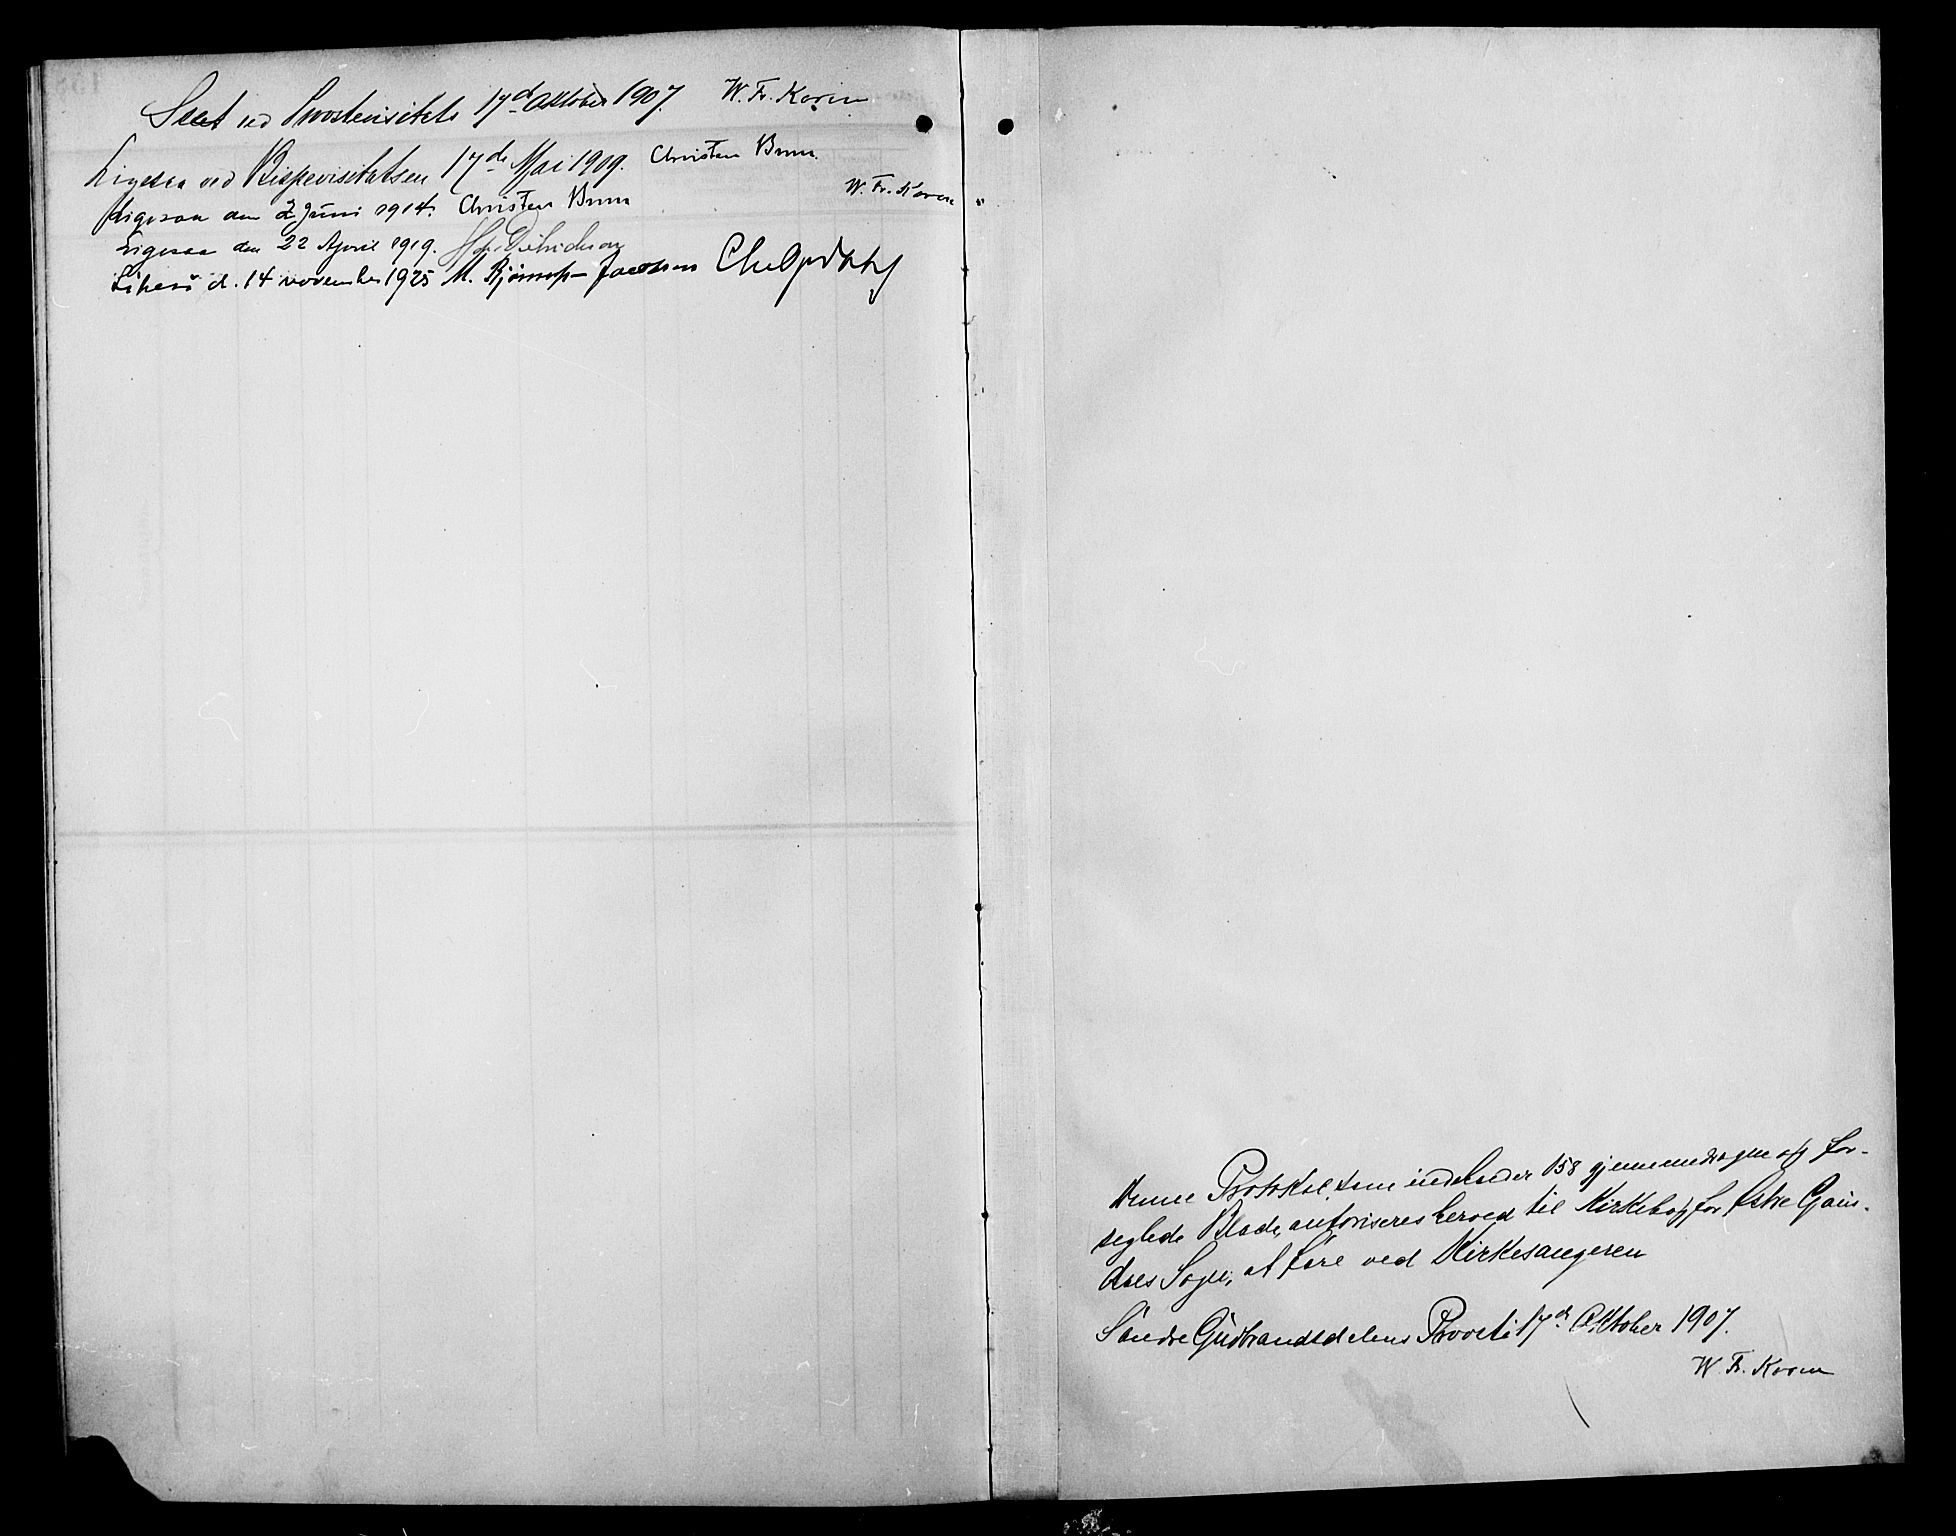 Seet ved Provstevisitats 17de Oktober 1907. W. Fr. Koren
Ligesaa ved Bispevisitatsen 17de Mai 1909. Christen Brun.
W. Fr. Koren
Ligesaa den 2 Juni 1914. Christen Brun
Ligesaa den 22 April 1919.
Likeså d. 14 november 1925 M. Bjønness-Jacobsen
Denne Protokol, som indeholder 158 gjennemdragne og for-
seglede Blade, autoriseres herved til Kirkebog for Østre Gaus-
dals Sogn, at føre ved Kirkesangeren
Søndre Gudbrandsdalens Provsti 17de Oktober 1907.
W. Fr. Koren